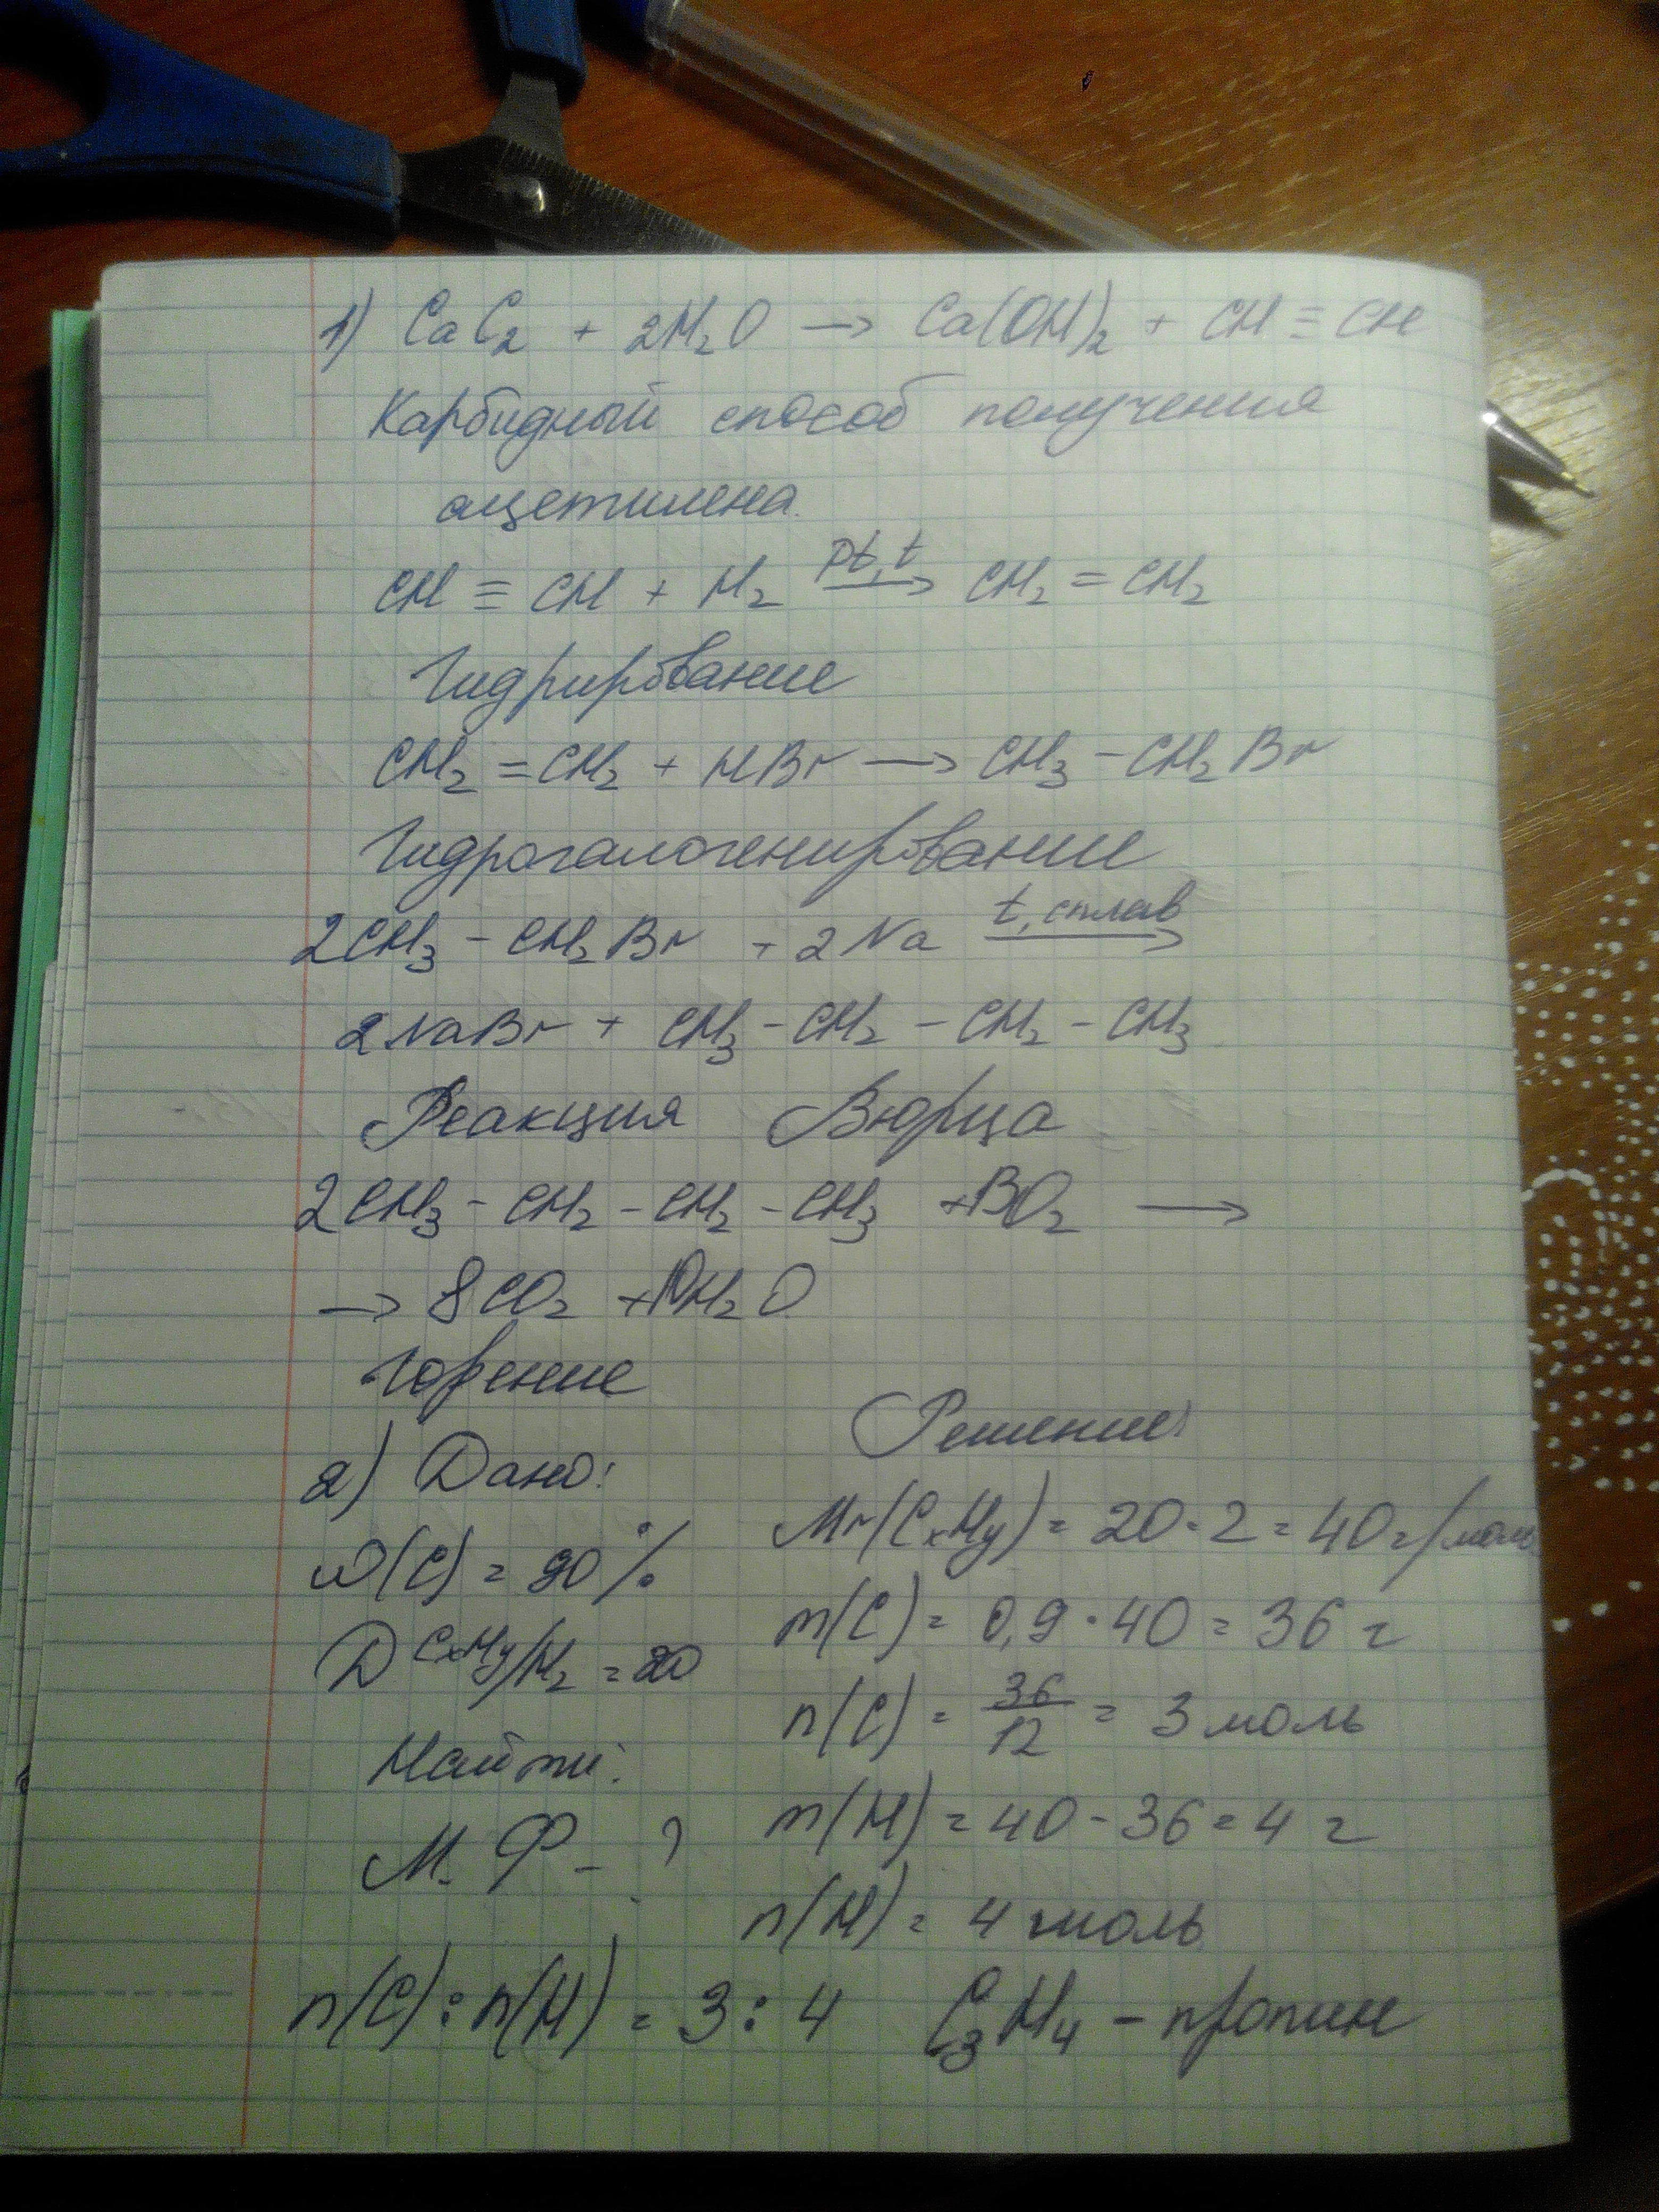 1) CaC₂ + 2H₂O → Ca(OH)₂ + CH ≡ CH
Карбидный способ получения
ацетилена.
CH ≡ CH + H₂ Pt, t → CH₂ = CH₂
Гидрирование
CH₂ = CH₂ + HBr → CH₃ – CH₂Br
Гидрогалогенирование
2CH₃ – CH₂Br + 2Na t, сплав →
2NaBr + CH₃ – CH₂ – CH₂ – CH₃
Реакция Вюрца
2CH₃ – CH₂ – CH₂ – CH₃ + 13O₂ →
→ 8CO₂ + 10H₂O
Горение
2) Дано:
Решение:
ω(C) = 90%
Mr(CₓHy) = 20·2 = 40 г/моль
D CₓHy/H₂ = 20
m(C) = 0,9·40 = 36 г
n(C) = 36/12 = 3 моль
Найти:
m(H) = 40 - 36 = 4 г
М. Ф – ?
n(H) = 4 моль
n(C) : n(H) = 3 : 4 C₃H₄ – пропин